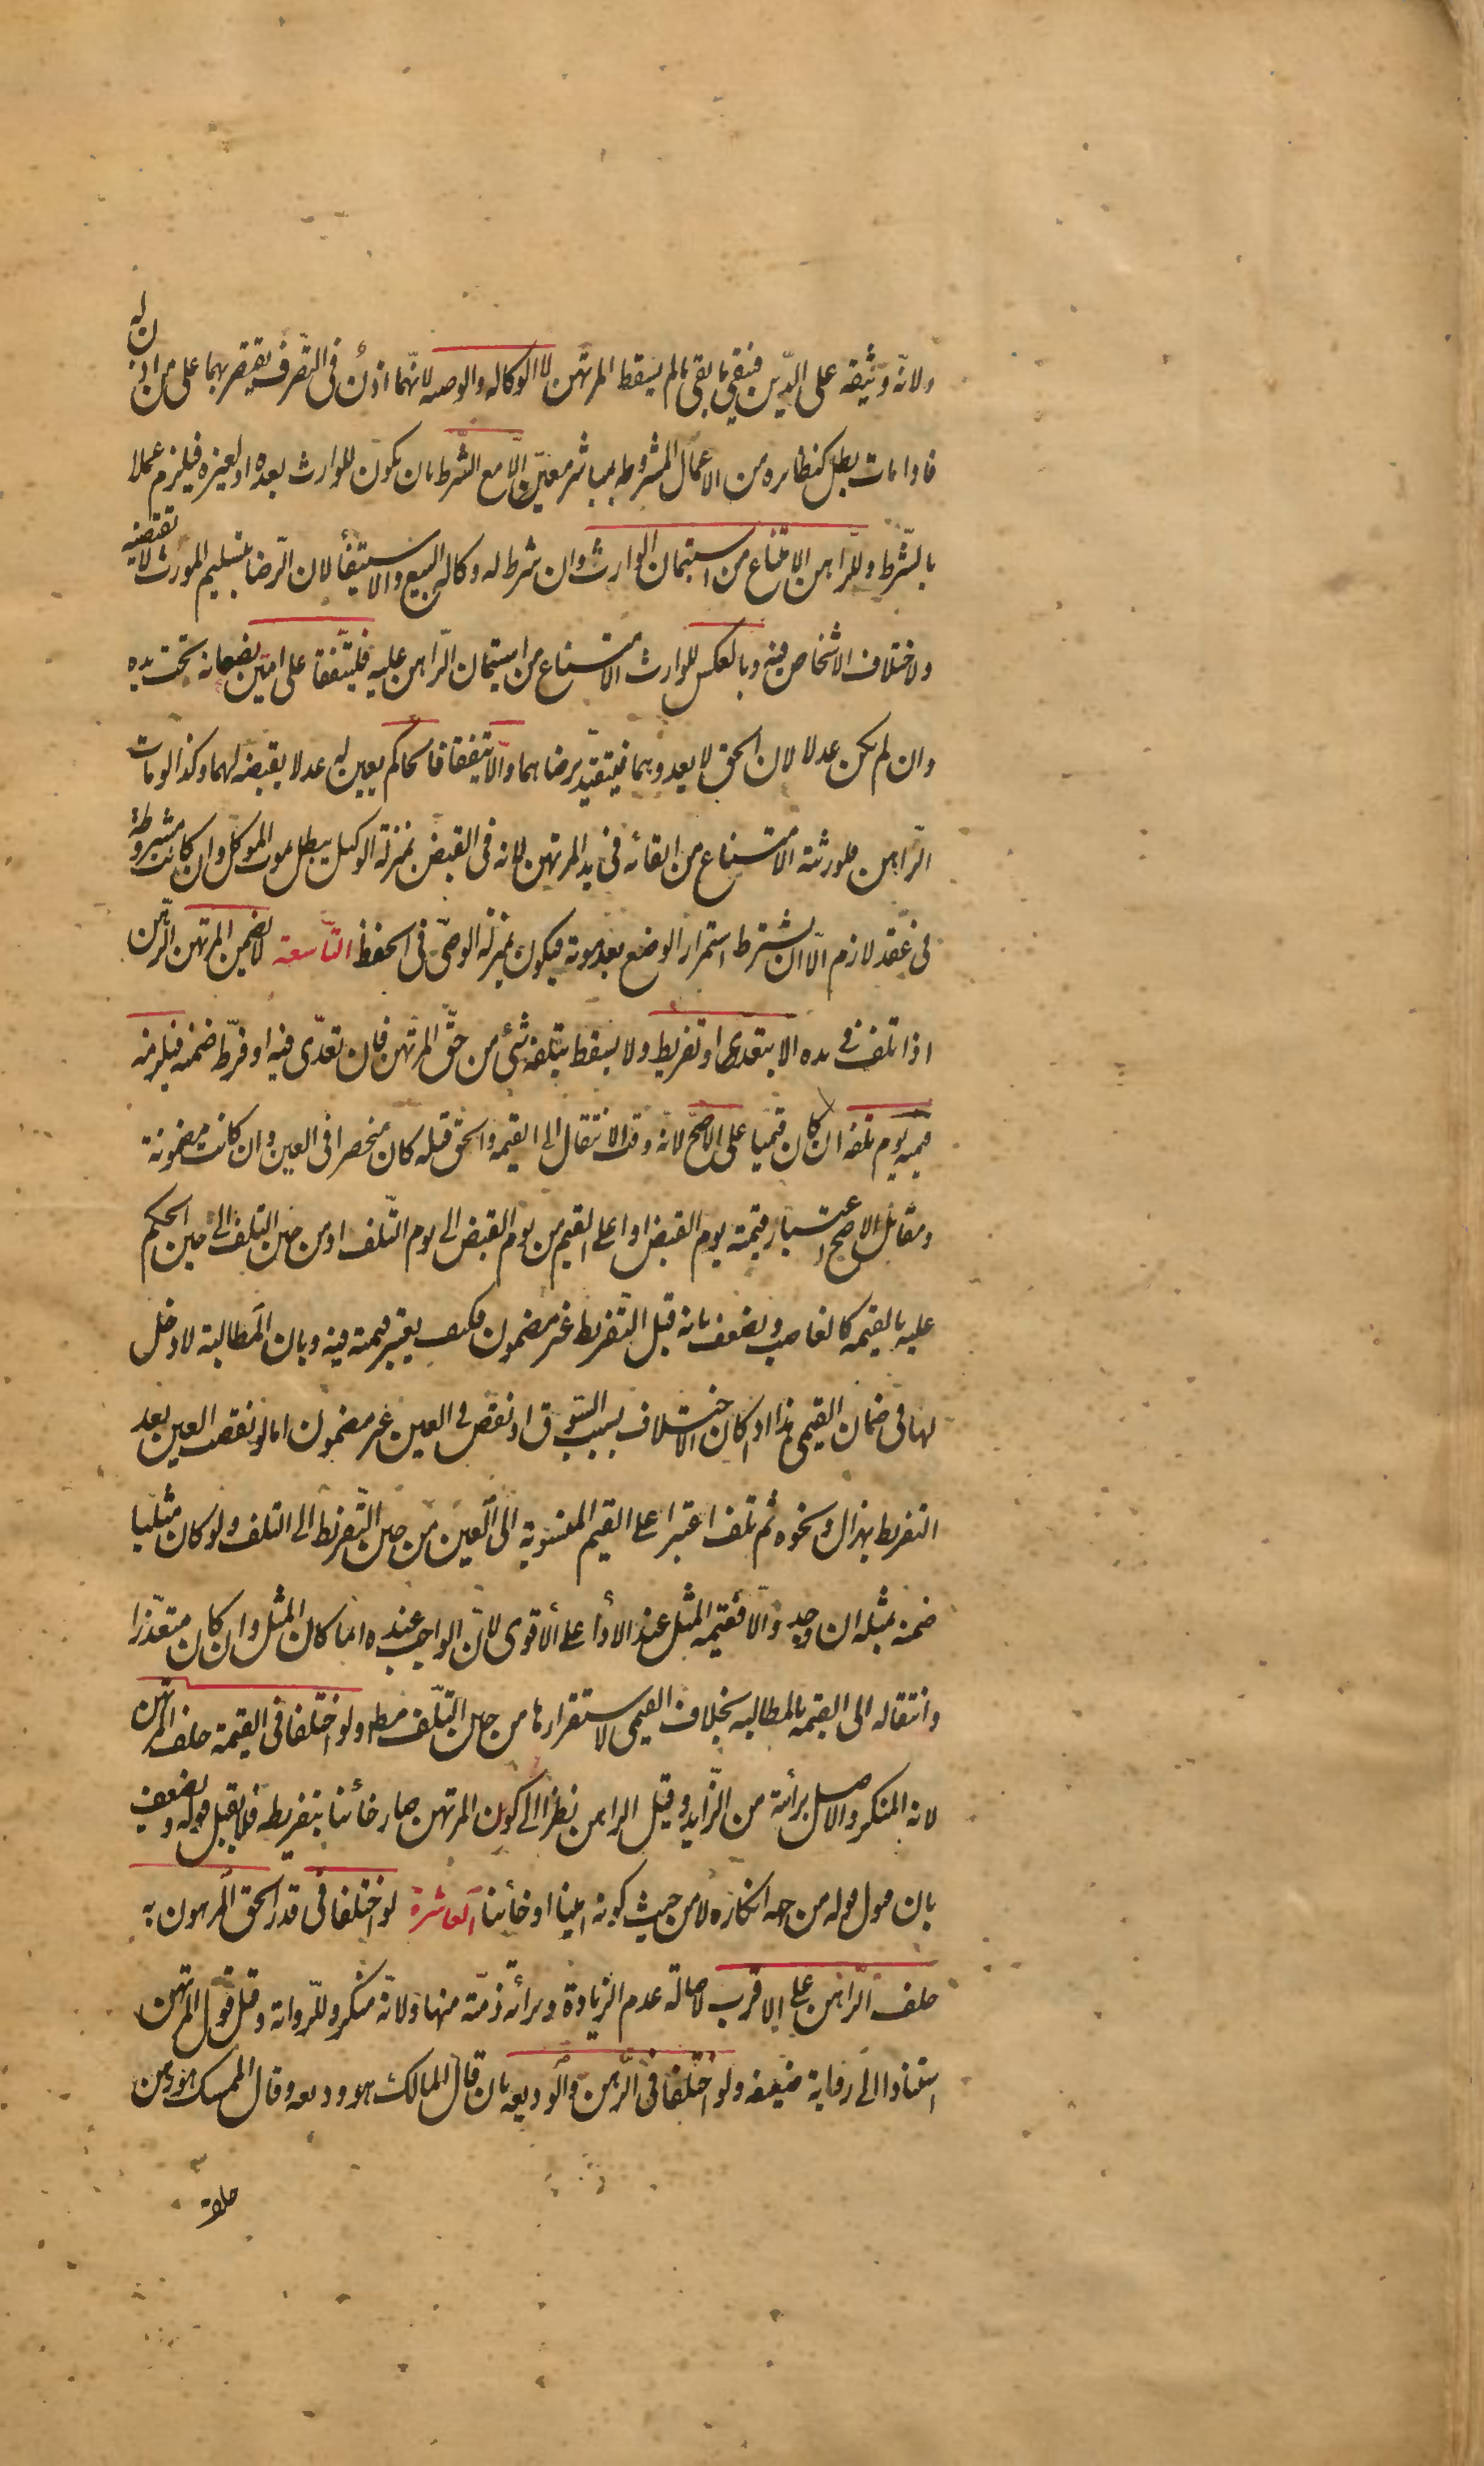 ولانه وثيقة على الدّين فيبقى ما بقى ما لم يسقط المرتهن لا الوكالة والوصية لانّهما اذن فى التّصرف يقتصر بهما على من اذن له
فاذا مات بطل كنظائره من الاعمال المشروطة بمباشر معيّن الّا مع الشّرط بان يكون للوارث بعده او لغيره فيلزم عملا
بالشّرط وللرّاهن الامتناع من استيمان الوارث وان شرط له وكالة البيع والاستيفأ لان الرّضا بتسليم المورث لا تقتضيه
ولاختلاف الاشخاص فيه وبالعكس للوارث الامتناع من استيمان الرّاهن عليه فليتّفقا على امين يضعانه تحت يده
وان لم يكن عدلا لان الحق لا يعدوهما فيتقيّد برضاهما والّا يتفقا فالحاكم يعين له عدلا يقبضه لهما وكذا لو مات
الرّاهن فلورثته الامتناع من ابقائه فى يد المرتهن لانه فى القبض بمنزلة الوكيل يبطل بموت الموكل وان كانت مشروطة
فى عقد لازم الّا ان يشترط استمرار الوضع بعد موته فيكون بمنزلة الوصىّ فى الحفظ التّاسعة لا يضمن المرتهن الرّهن
اذا تلف فى يده الا بتعدى او تفريط ولا يسقط بتلفه شئ من حقّ المرتهن فان تعدّى فيه او فرّط ضمنه فيلزمه
قيمته يوم تلفه ان كان قيميا على الاصحّ لانه وقت الانتقال الى القيمة والحق قبله كان منحصرا فى العين وان كانت مضمونة
ومقابل الاصح اعتبار قيمته يوم القبض او اعلى القيم من يوم القبض الى يوم التّلف او من حين التلف الى حين الحكم
عليه بالقيمة كالغاصب ويضعف بانه قبل التّفريط غير مضمون فكيف يعتبر قيمته فيه وبان المطالبة لا دخل
لها فى ضمان القيمى هذا اذا كان الاختلاف بسبب السّوق او نقص فى العين غير مضمون اما لو نقصت العين بعد
التفريط بهزال ونحوه ثم تلف اعتبر اعلى القيم المنسوبة الى العين من حين التّفريط الى التلف ولو كان مثليا
ضمنه بمثله ان وجد والّا فقيمة المثل عند الاداء على الأقوى لانّ الواجب عنده انما كان المثل وان كان متعذّرا
وانتقاله الى القيمة بالمطالبة بخلاف القيمى لاستقرارها من حين التّلف مطلقا ولو اختلفا فى القيمة حلف المرتهن
لانه المنكر والاصل برأته من الزّايد وقيل الراهن نظرا الى كون المرتهن صار خائنا بتفريطه فلا يقبل قوله ويضعف
بان قبول قوله من جهة انكاره لا من حيث كونه امينا او خائنا العاشرة لو اختلفا فى قدر الحق المرهون به
حلف الرّاهن على الاقرب لاصالة عدم الزيادة وبرأة ذمّته منها ولانّه منكر وللرّواية وقيل قول المرتهن
استنادا الى رواية ضعيفة ولو اختلفا فى الرّهن والوديعة بان قال المالك هو وديعة وقال الممسك هو رهن